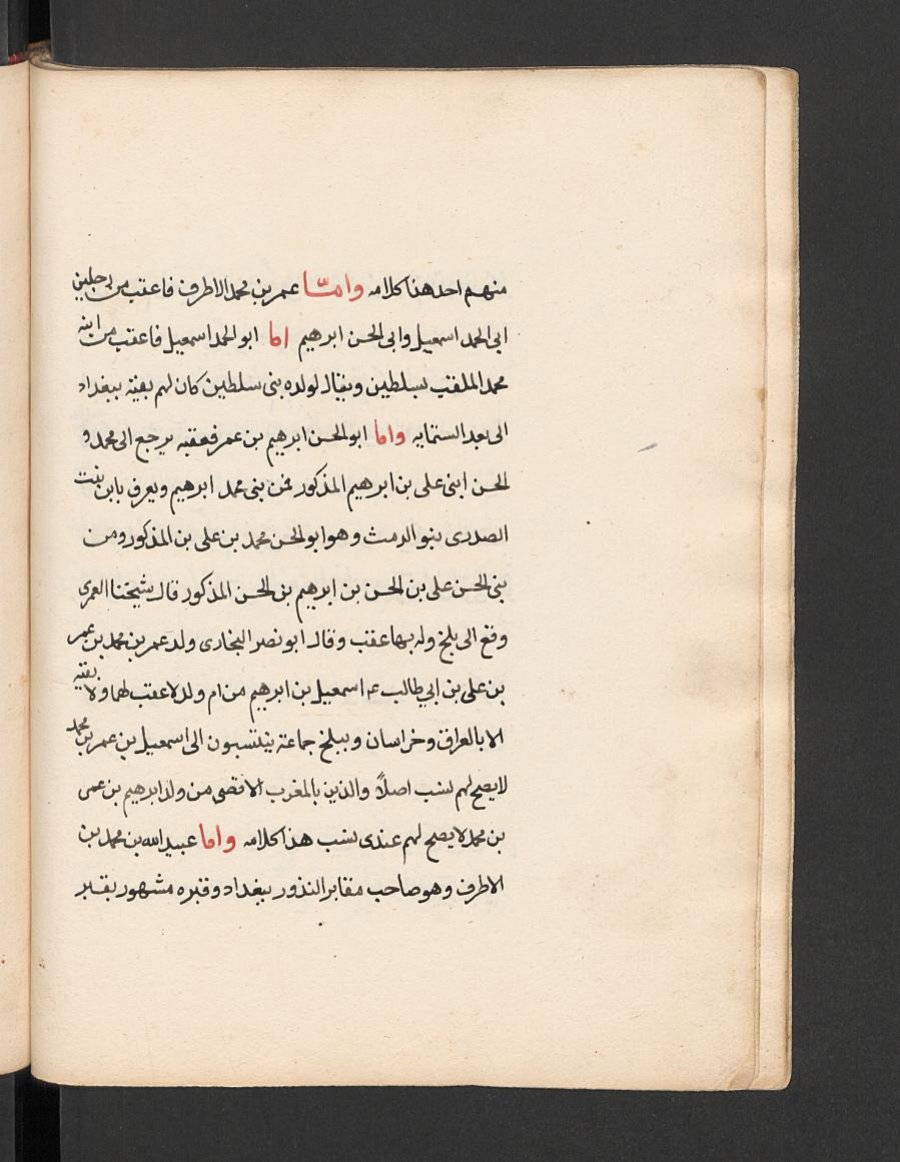 منهم احد هذا كلامه وامّا عمر بن محمد الاطرف فاعقب من رجلين
ابى الحمد اسمعيل وابى الحسن ابرهيم اما ابو الحمد اسمعيل فاعقب من ابنه
محمد الملقب بسلطين ويقال لولده بنى سلطين كان لهم بقية ببغداد
الى بعد الستمايه واما ابو الحسن ابرهيم بن عمر فعقبه يرجع الى محمد و
الحسن ابنى على بن ابرهيم المذكور فمن بنى محمد ابرهيم ويعرف بابن بنت
الصدرى بنو الدمث وهو ابو الحسن محمد بن على بن المذكور ومن
بنى الحسن على بن الحسن بن ابرهيم بن الحسن المذكور قال شيخنا العمرى
وقع الى بلخ وله بها عقب وقال ابو نصر البخارى ولد عمر بن محمد بن عمر
بن على بن ابي طالب ع م اسمعيل بن ابرهيم من ام ولد لا عقب لهما ولا بقية
الا بالعراق وخراسان وببلخ جماعة ينتسبون الى اسمعيل بن عمر بن محمد
لا يصح لهم نسب اصلاً والذين بالمغرب الاقصى من ولد ابرهيم بن عمر
بن محمد لا يصح لهم عندى نسب هذا كلامه واما عبيد الله بن محمد بن
الاطرف وهو صاحب مقابر النذور ببغداد وقبره مشهور بقبر